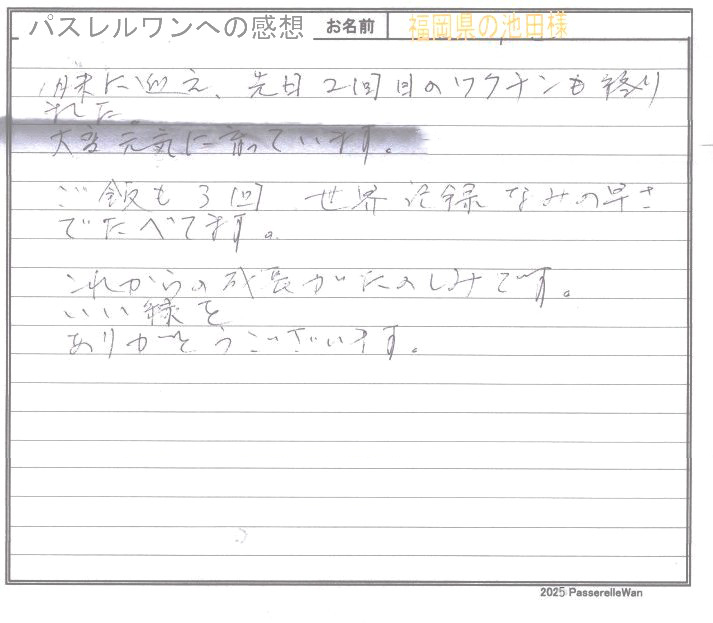 パスレルワンへの感想 お名前 福岡県の池田様
月末に迎え、先日2回目のワクチンも終り
ました。
大変元気に育っています。
ご飯も3回 世界記録なみの早さ
でたべてます。
これからの成長がたのしみです。
いい縁を
ありがとうございます。
2025 PasserelleWan